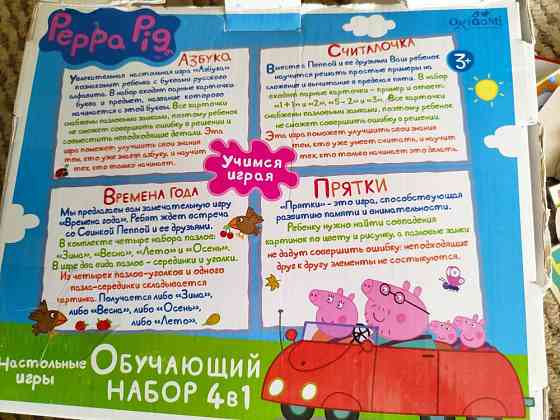 Peppa Pig
Origami
3+
Азбука
Увлекательная настольная игра «Азбука»
познакомит ребенка с буквами русского
алфавита. В набор входят парные карточки
буква и предмет, название которого
начинается с этой буквы. Все карточки
снабжены пазловыми замками, поэтому ребенок
не сможет совершить ошибку в решении и
совместить неподходящие детали. Эта
игра поможет улучшить свои знания
тем, кто уже знает азбуку, и научит
тех, кто только начинает.
Считалочка
Вместе с Пеппой и ее друзьями Ваш ребенок
научится решать простые примеры на
сложение и вычитание в пределах пяти. В набор
входят парные карточки - пример и ответ:
«1+1» и «2», «5-2» и «3». Все карточки
снабжены пазловыми замками, поэтому ребенок
не сможет совершить ошибку в решении.
Эта игра поможет улучшить свои знания
тем, кто уже умеет считать, и научит
тех, кто только начинает это делать.
Учимся
играя
Времена года
Мы предлагаем вам замечательную игру
«Времена года». Ребят ждет встреча
со Свинкой Пеппой и ее друзьями.
В комплекте четыре набора пазлов:
«Зима», «Весна», «Лето» и «Осень».
В игре два вида пазлов - серединки и уголки.
Из четырех пазлов-уголков и одного
пазла-серединки складывается
картинка. Получается либо «Зима»,
либо «Весна», либо «Осень»,
либо «Лето».
Прятки
«Прятки» - это игра, способствующая
развитию памяти и внимательности.
Ребенку нужно найти совпадения
картинок по цвету и рисунку, а пазловые замки
не дадут совершить ошибку: неподходящие
друг к другу элементы не состыкуются.
Настольные
игры
Обучающий
набор 4в1